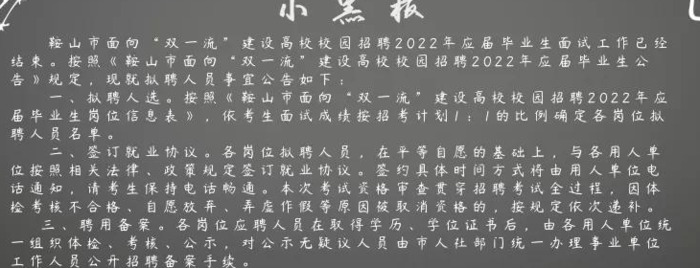 小黑板
鞍山市面向“双一流”建设高校校园招聘2022年应届毕业生面试工作已经
结束。按照《鞍山市面向“双一流”建设高校校园招聘2022年应届毕业生公
告》规定,现就拟聘人员事宜公告如下:
一、拟聘人选。按照《鞍山市面向“双一流”建设高校校园招聘2022年应
届毕业生岗位信息表》,依考生面试成绩按招考计划1:1的比例确定各岗位拟
聘人员名单。
二、签订就业协议。各岗位拟聘人员,在平等自愿的基础上,与各用人单
位按照相关法律、政策规定签订就业协议。签约具体时间方式将由用人单位电
话通知,请考生保持电话畅通。本次考试资格审查贯穿招聘考试全过程,因体
检考核不合格、自愿放弃、弄虚作假等原因被取消资格的,按规定依次递补。
三、聘用备案。各岗位应聘人员在取得学历、学位证书后,由各用人单位统
一组织体检、考核、公示,对公示无疑议人员由市人社部门统一办理事业单位
工作人员公开招聘备案手续。